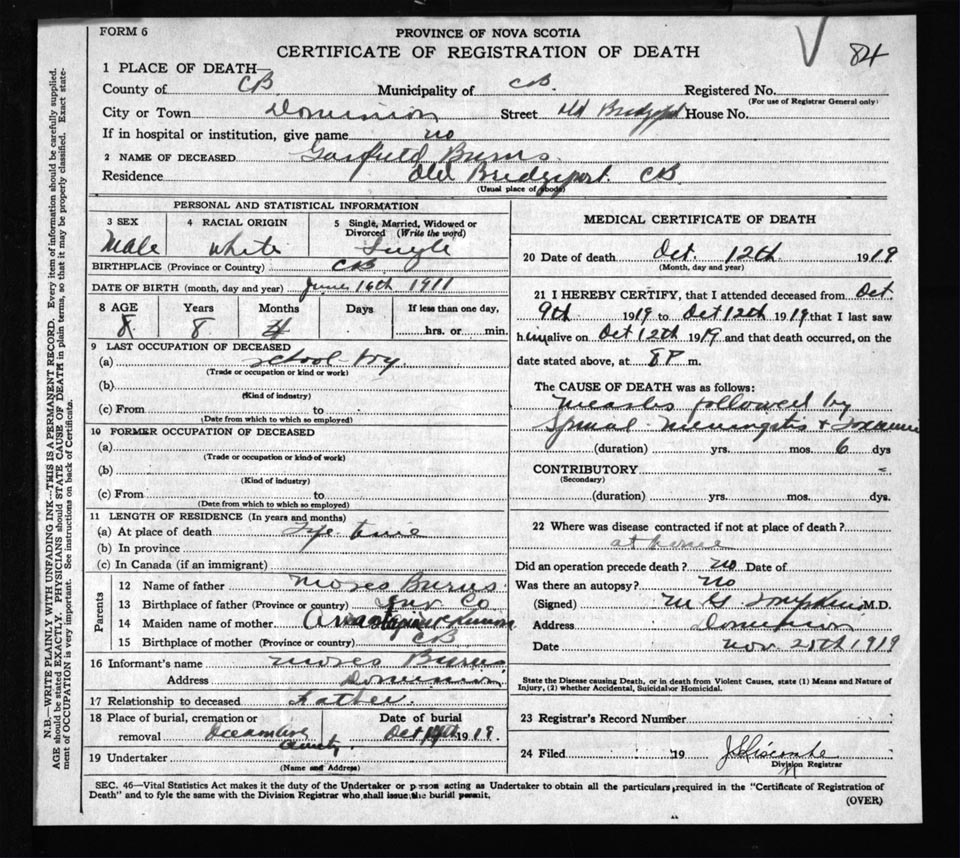 FORM 6
PROVINCE OF NOVA SCOTIA
CERTIFICATE OF REGISTRATION OF DEATH
84
1 PLACE OF DEATH—
County of CB Municipality of CB. Registered No.
(For use of Registrar General only)
City or Town Dominion Street Old Bridgeport House No.
If in hospital or institution, give name no
2 NAME OF DECEASED Garfield Burns
Residence Old Bridgeport. CB
(Usual place of abode)
PERSONAL AND STATISTICAL INFORMATION
3 SEX 4 RACIAL ORIGIN 5 Single, Married, Widowed or Divorced (Write the word)
Male White Single
BIRTHPLACE (Province or Country) CB
DATE OF BIRTH (month, day and year) June 16th 1911
8 AGE Years Months Days If less than one day,
8 8 4 hrs. or min.
9 LAST OCCUPATION OF DECEASED
(a) School-boy
(Trade or occupation or kind or work)
(b)
(Kind of industry)
(c) From to
(Date from which to which so employed)
10 FORMER OCCUPATION OF DECEASED
(a)
(Trade or occupation or kind of work)
(b)
(Kind of industry)
(c) From to
(Date from which to which so employed)
11 LENGTH OF RESIDENCE (In years and months)
(a) At place of death Life time
(b) In province
(c) In Canada (if an immigrant)
Parents
12 Name of father Moses Burns
13 Birthplace of father (Province or country) Inv Co
14 Maiden name of mother
15 Birthplace of mother (Province or country) CB
16 Informant's name Moses Burns
Address Dominion
17 Relationship to deceased Father
18 Place of burial, cremation or removal Date of burial
Oct 1919
19 Undertaker
(Name and Address)
MEDICAL CERTIFICATE OF DEATH
20 Date of death Oct. 12th 1919
(Month, day and year)
21 I HEREBY CERTIFY, that I attended deceased from Oct.
9th 1919 to Oct 12th 1919 that I last saw
him alive on Oct 12th 1919 and that death occurred, on the
date stated above, at 8 P m.
The CAUSE OF DEATH was as follows:
Measles followed by
Spinal-Meningitis +
(duration) yrs. mos. 6 dys
CONTRIBUTORY
(Secondary)
(duration) yrs. mos. dys.
22 Where was disease contracted if not at place of death?
at home
Did an operation precede death? no Date of
Was there an autopsy? no
(Signed) M G Tompkins M.D.
Address Dominion
Date Nov 25th 1919
State the Disease causing Death, or in death from Violent Causes, state (1) Means and Nature of
Injury, (2) whether Accidental, Suicidal or Homicidal.
23 Registrar's Record Number
24 Filed 19
Division Registrar
SEC. 46—Vital Statistics Act makes it the duty of the Undertaker or person acting as Undertaker to obtain all the particulars required in the "Certificate of Registration of
Death" and to fyle the same with the Division Registrar who shall issue the burial permit.
(OVER)
N.B.—WRITE PLAINLY WITH UNFADING INK—THIS IS A PERMANENT RECORD. Every item of information should be carefully supplied.
AGE should be stated EXACTLY. PHYSICIANS should STATE CAUSE OF DEATH in plain terms, so that it may be properly classified. Exact state-
ment of OCCUPATION is very important. See instructions on back of Certificate.